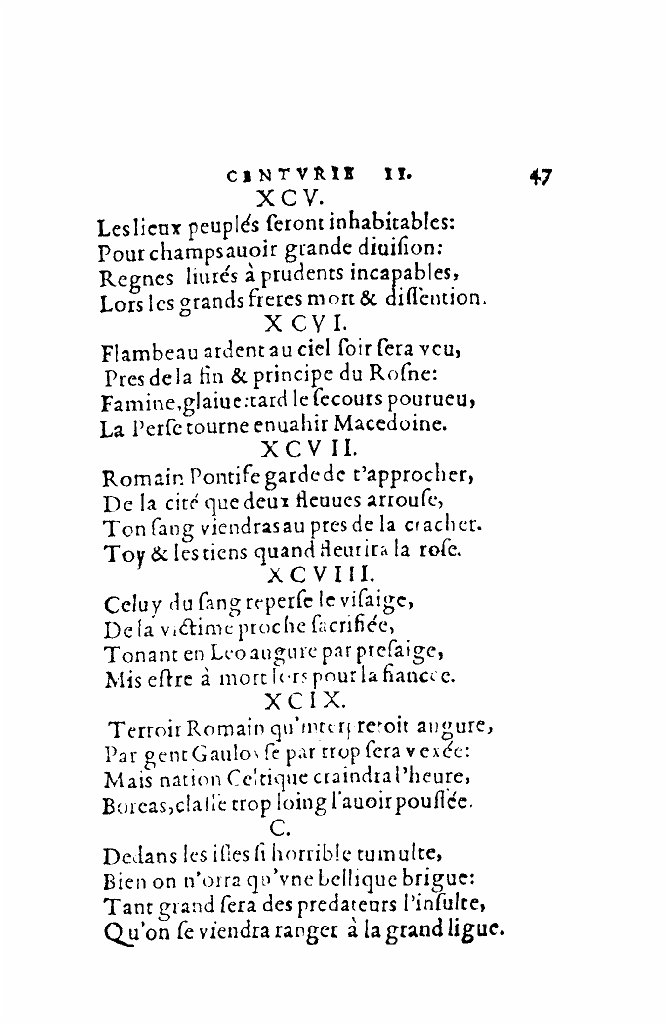 CENTVRIE II. 47
XCV.
Les lieux peuplés ſeront inhabitables:
Pour champs auoir grande diuiſion:
Regnes liurés à prudents incapables,
Lors les grands freres mort & diſſention.
XCVI.
Flambeau ardent au ciel ſoir ſera veu,
Pres de la fin & principe du Roſne:
Famine, glaiue: tard le ſecours pourueu,
La Perſe tourne enuahir Macedoine.
XCVII.
Romain Pontife garde de t'approcher,
De la cité que deux fleuues arrouſe,
Ton ſang viendras au pres de la cracher.
Toy & les tiens quand fleurira la roſe.
XCVIII.
Celuy du ſang reperſe le viſaige,
De la victime proche ſacrifiée,
Tonant en Leo augure par preſaige,
Mis eſtre à mort lors pour la fiancée.
XCIX.
Terroir Romain qu'interpretoit augure,
Par gent Gauloſe par trop ſera vexée:
Mais nation Celtique craindra l'heure,
Boreas, claſſe trop loing l'auoir pouſſée.
C.
Dedans les iſles ſi horrible tumulte,
Bien on n'orra qu'vne bellique brigue:
Tant grand ſera des predateurs l'inſulte,
Qu'on ſe viendra ranger à la grand ligue.